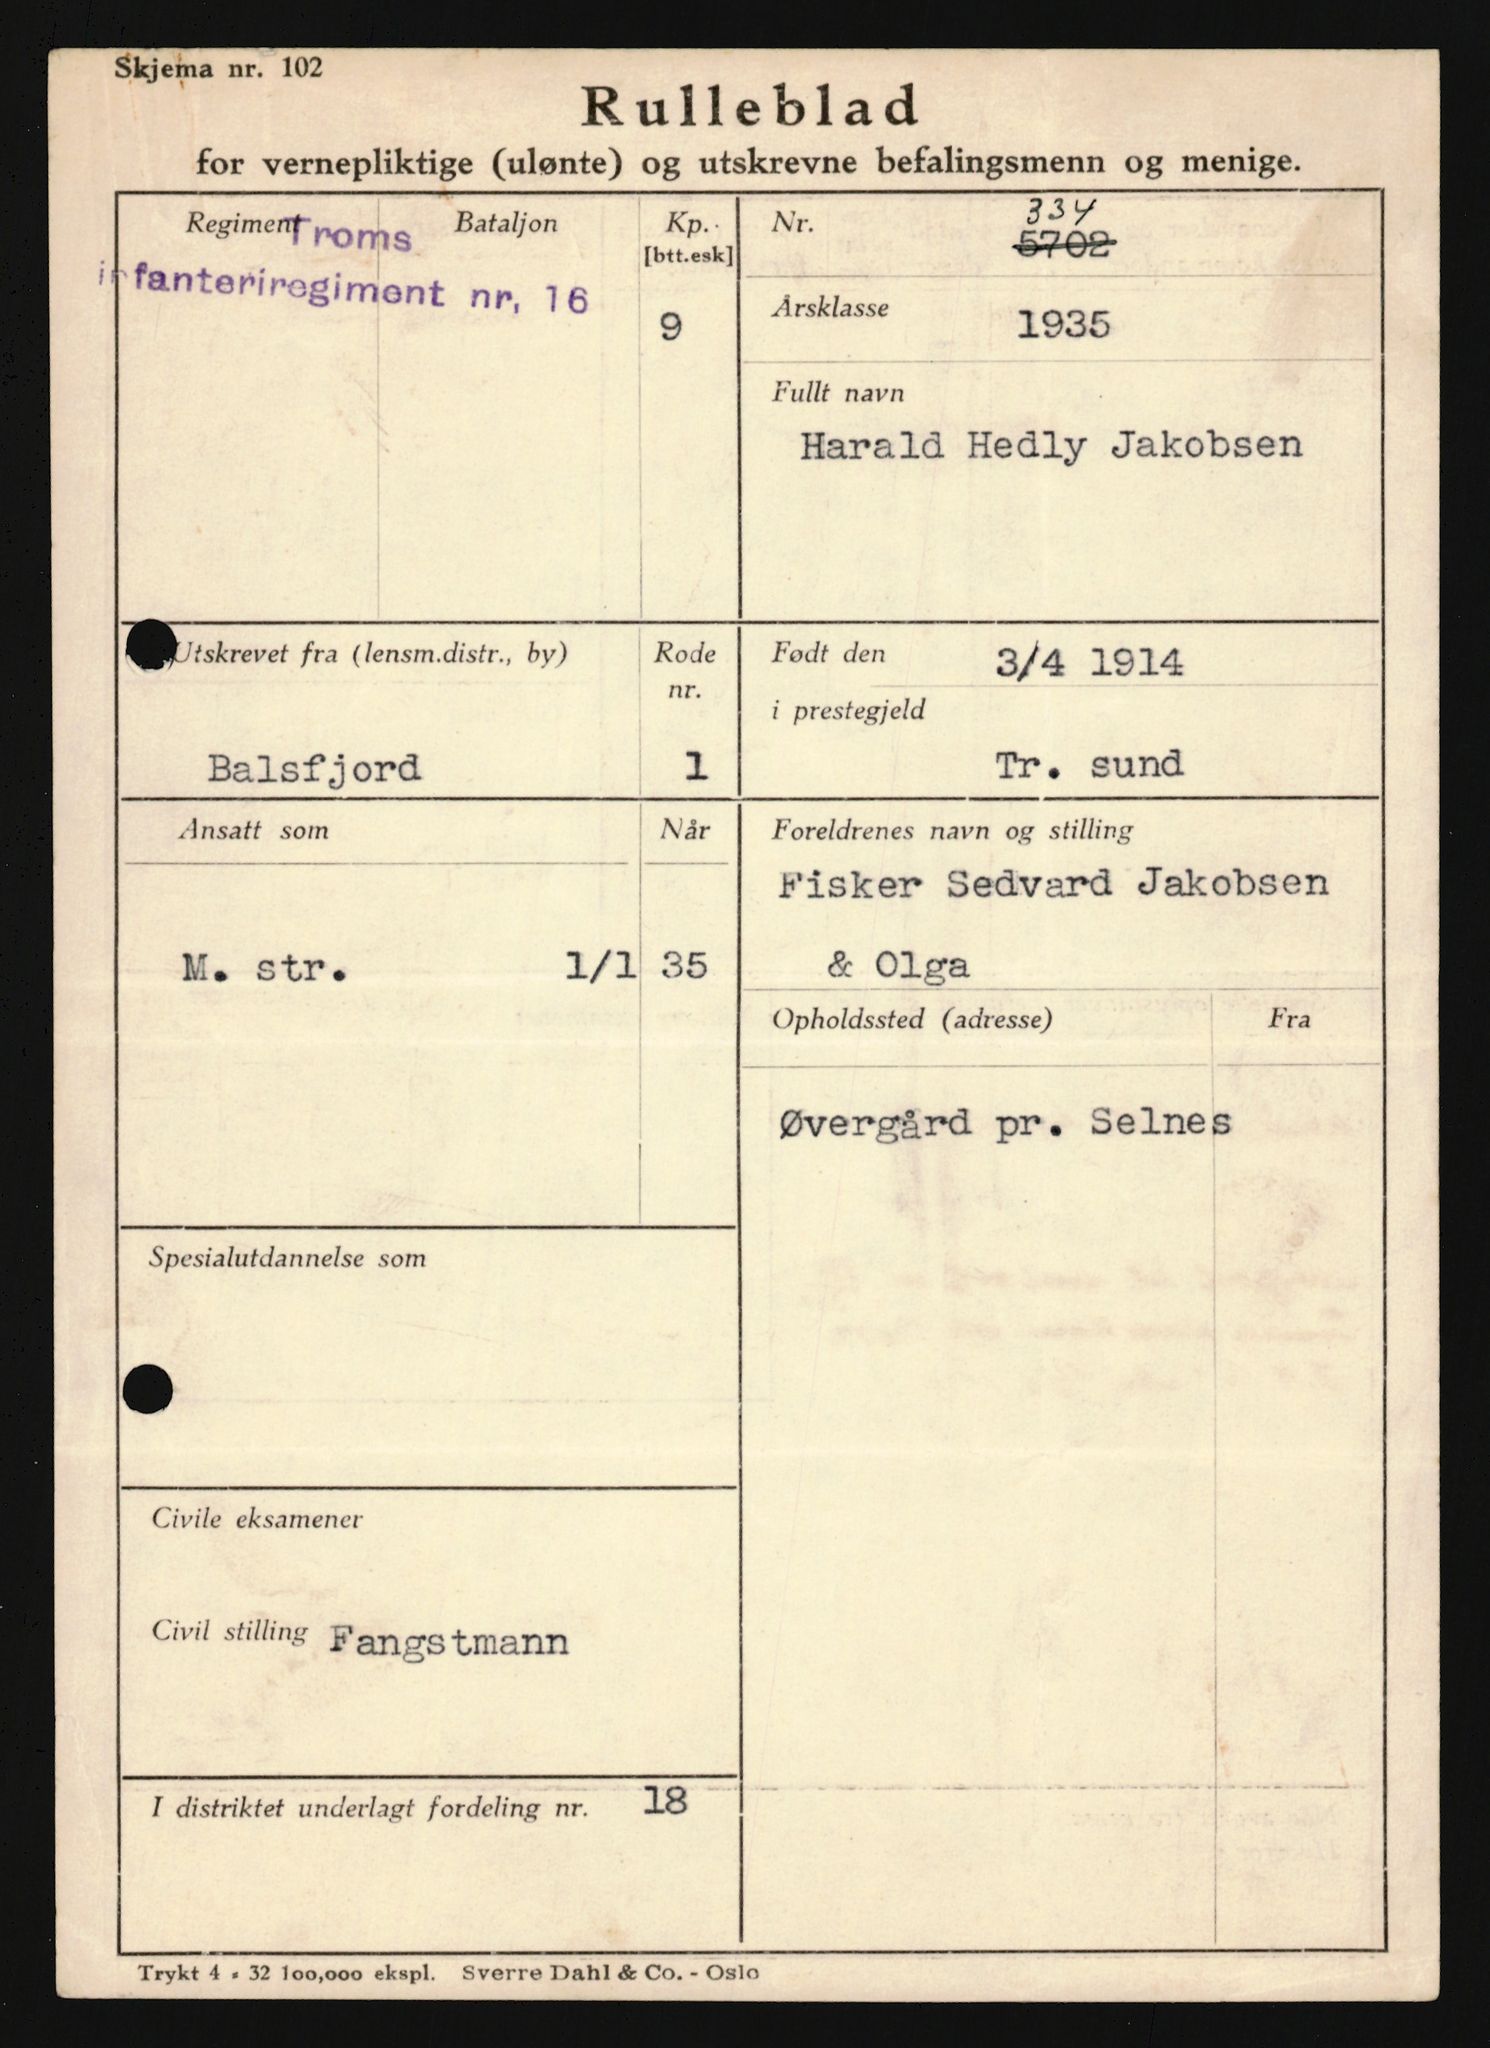 Skjema nr. 102
Rulleblad
for vernepliktige (ulønte) og utskrevne befalingsmenn og menige.
Regiment
Bataljon
Kp.
[btt.esk]
Troms
infanteriregiment nr. 16
9
Nr.
334
5702
Årsklasse
1935
Fullt navn
Harald Hedly Jakobsen
Utskrevet fra (lensm.distr., by)
Rode
nr.
Balsfjord
1
Født den
3/4 1914
i prestegjeld
Tr. sund
Ansatt som
Når
M. str. 1/1 35
Foreldrenes navn og stilling
Fisker Sedvard Jakobsen
& Olga
Opholdssted (adresse)
Fra
Øvergård pr. Selnes
Spesialutdannelse som
Civile eksamener
Civil stilling Fangstmann
I distriktet underlagt fordeling nr. 18
Trykt 4 - 32 100,000 ekspl. Sverre Dahl & Co. - Oslo